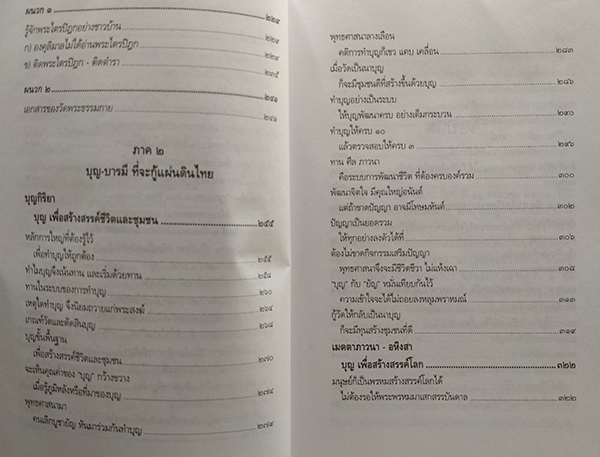 ผนวก ๑ ๒๒๙
รู้จักพระไตรปิฎกอย่างชาวบ้าน ๒๒๙
ก) องคุลิมาลไม่ได้อ่านพระไตรปิฎก ๒๒๙
ข) ติดพระไตรปิฎก - ติดตำรา ๒๓๕
ผนวก ๒ ๒๔๑
เอกสารของวัดพระธรรมกาย ๒๔๑
ภาค ๒
บุญ-บารมี ที่จะกู้แผ่นดินไทย
บุญกิริยา
บุญ เพื่อสร้างสรรค์ชีวิตและชุมชน ๒๔๕
หลักการใหญ่ที่ต้องรู้ไว้
เพื่อทำบุญให้ถูกต้อง ๒๕๕
ทำไมบุญจึงเน้นทาน และเริ่มด้วยทาน ๒๕๘
ทานในระบบของการทำบุญ ๒๖๐
เหตุใดทำบุญ จึงนิยมถวายแก่พระสงฆ์ ๒๖๔
เกณฑ์วัดและตัดสินบุญ ๒๖๘
บุญขั้นพื้นฐาน
เพื่อสร้างสรรค์ชีวิตและชุมชน ๒๗๐
จะเห็นคุณค่าของ "บุญ" กว้างขวาง
เมื่อรู้ภูมิหลังหรือที่มาของบุญ ๒๗๔
พุทธศาสนามา
คนเลิกบูชายัญ หันมาร่วมกันทำบุญ ๒๗๙
พุทธศาสนาลางเลือน
คติการทำบุญก็เขว แคบ เคลื่อน ๒๘๓
เมื่อวัดเป็นนาบุญ
ก็จะมีชุมชนดีที่สร้างขึ้นด้วยบุญ ๒๘๖
ทำบุญอย่างเป็นระบบ
ให้บุญพัฒนาครบ อย่างเต็มกระบวน ๒๙๐
ทำบุญให้ครบ ๑๐
แล้วตรวจสอบให้ครบ ๓ ๒๙๖
ทาน ศีล ภาวนา
คือระบบการพัฒนาชีวิต ที่ต้องครบองค์รวม ๓๐๐
พัฒนาจิตใจ มีคุณใหญ่อนันต์
แต่ถ้าขาดปัญญา อาจมีโทษมหันต์ ๓๐๒
ปัญญาเป็นยอดรวม
ให้ทุกอย่างลงตัวได้ที่ ๓๐๖
ต้องไม่ขาดกิจกรรมเสริมปัญญา
พุทธศาสนาจึงจะมีชีวิตชีวา ไม่แห้งเฉา ๓๐๘
"บุญ" กับ "ยัญ" หมั่นเทียบกันไว้
ความเข้าใจจะได้ไม่ถอยลงหลุมพราหมณ์ ๓๑๓
กู้วัดให้กลับเป็นนาบุญ
ก็จะมีทุนสร้างชุมชนที่ดี ๓๑๙
เมตตาภาวนา - อหิงสา
บุญ เพื่อสร้างสรรค์โลก ๓๒๒
มนุษย์ก็เป็นพรหมสร้างสรรค์โลกได้
ไม่ต้องรอให้พระพรหมมาเสกสรรบันดาล ๓๒๒